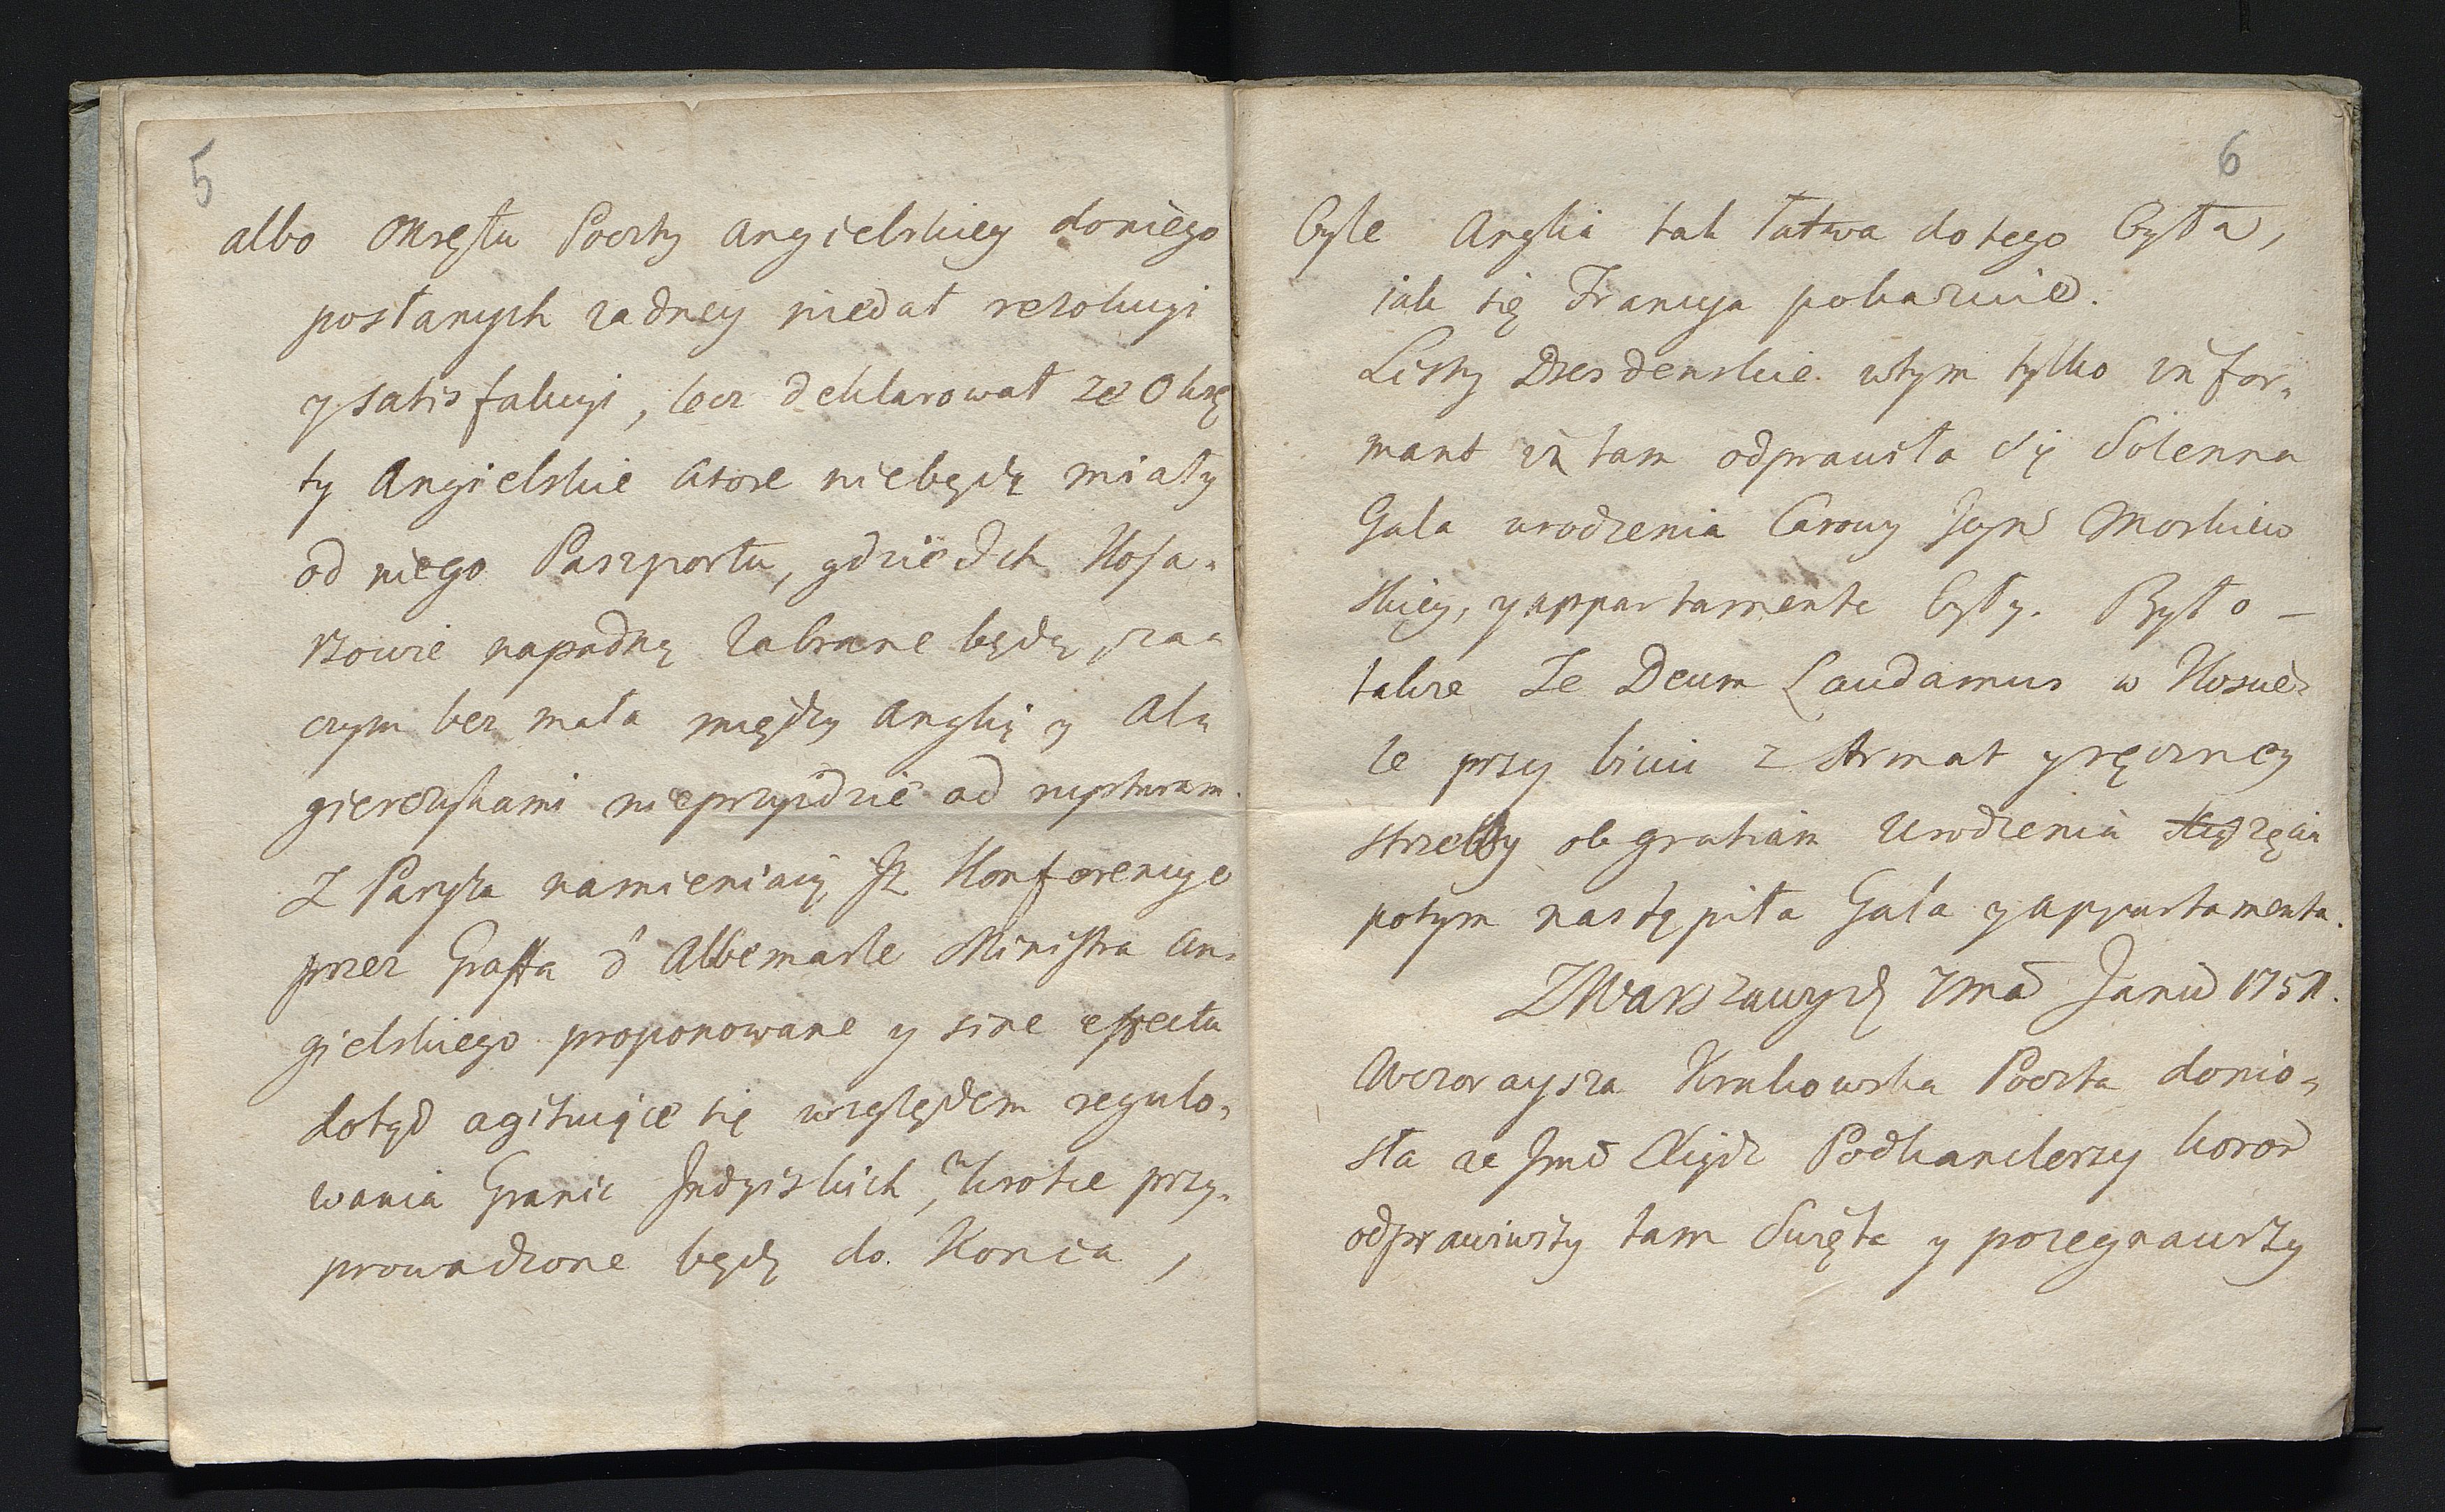 5
albo Okrętu Poczty Angielskiey doniego
posłanych zadney niedał rezolucyi
y satisfakcyi, lecz deklarował ze Okrę
ty Angielskie ktore niebędą miały
od niego Paszportu, gdzie Ich Korsa-
rzowie napadną zabrane będą, za
czym bez mała między Anglią y Al
gierczykami nieprzyidzie ad rupturam.
Z Paryża namieniaią Iz Konferencye
przez Graffa d'Albemarle Ministra An-
gielskiego proponowane y sine effectu
dotąd agituiące się względem regulo-
wania Granic Indyiskich, wkrotce przy-
prowadzone będą do Konca,
6
byle Anglia tak łatwa do tego była,
iak się Francya pokazuie.
Listy Drezdenskie wtym tylko infor-
mant iż tam odprawiła się Solenna
Gala urodzenia Carowy Jeym Moskiew
skiey, y appartamenta były. Było -
takze Te Deum Laudamus w Koscie-
le przy biciu z Armat y ręczney
strzelby ob gratiam Urodzenia Xiążęcia
potym nastąpiła Gala y appartamenta.
Z Warszawy d 7ma Janu 1751.
Wczoraysza Krakowska Poczta donio-
sła ze Jmć Xiądz Podkanclerzy koron
odprawiwszy tam Swięta y pozegnawszy